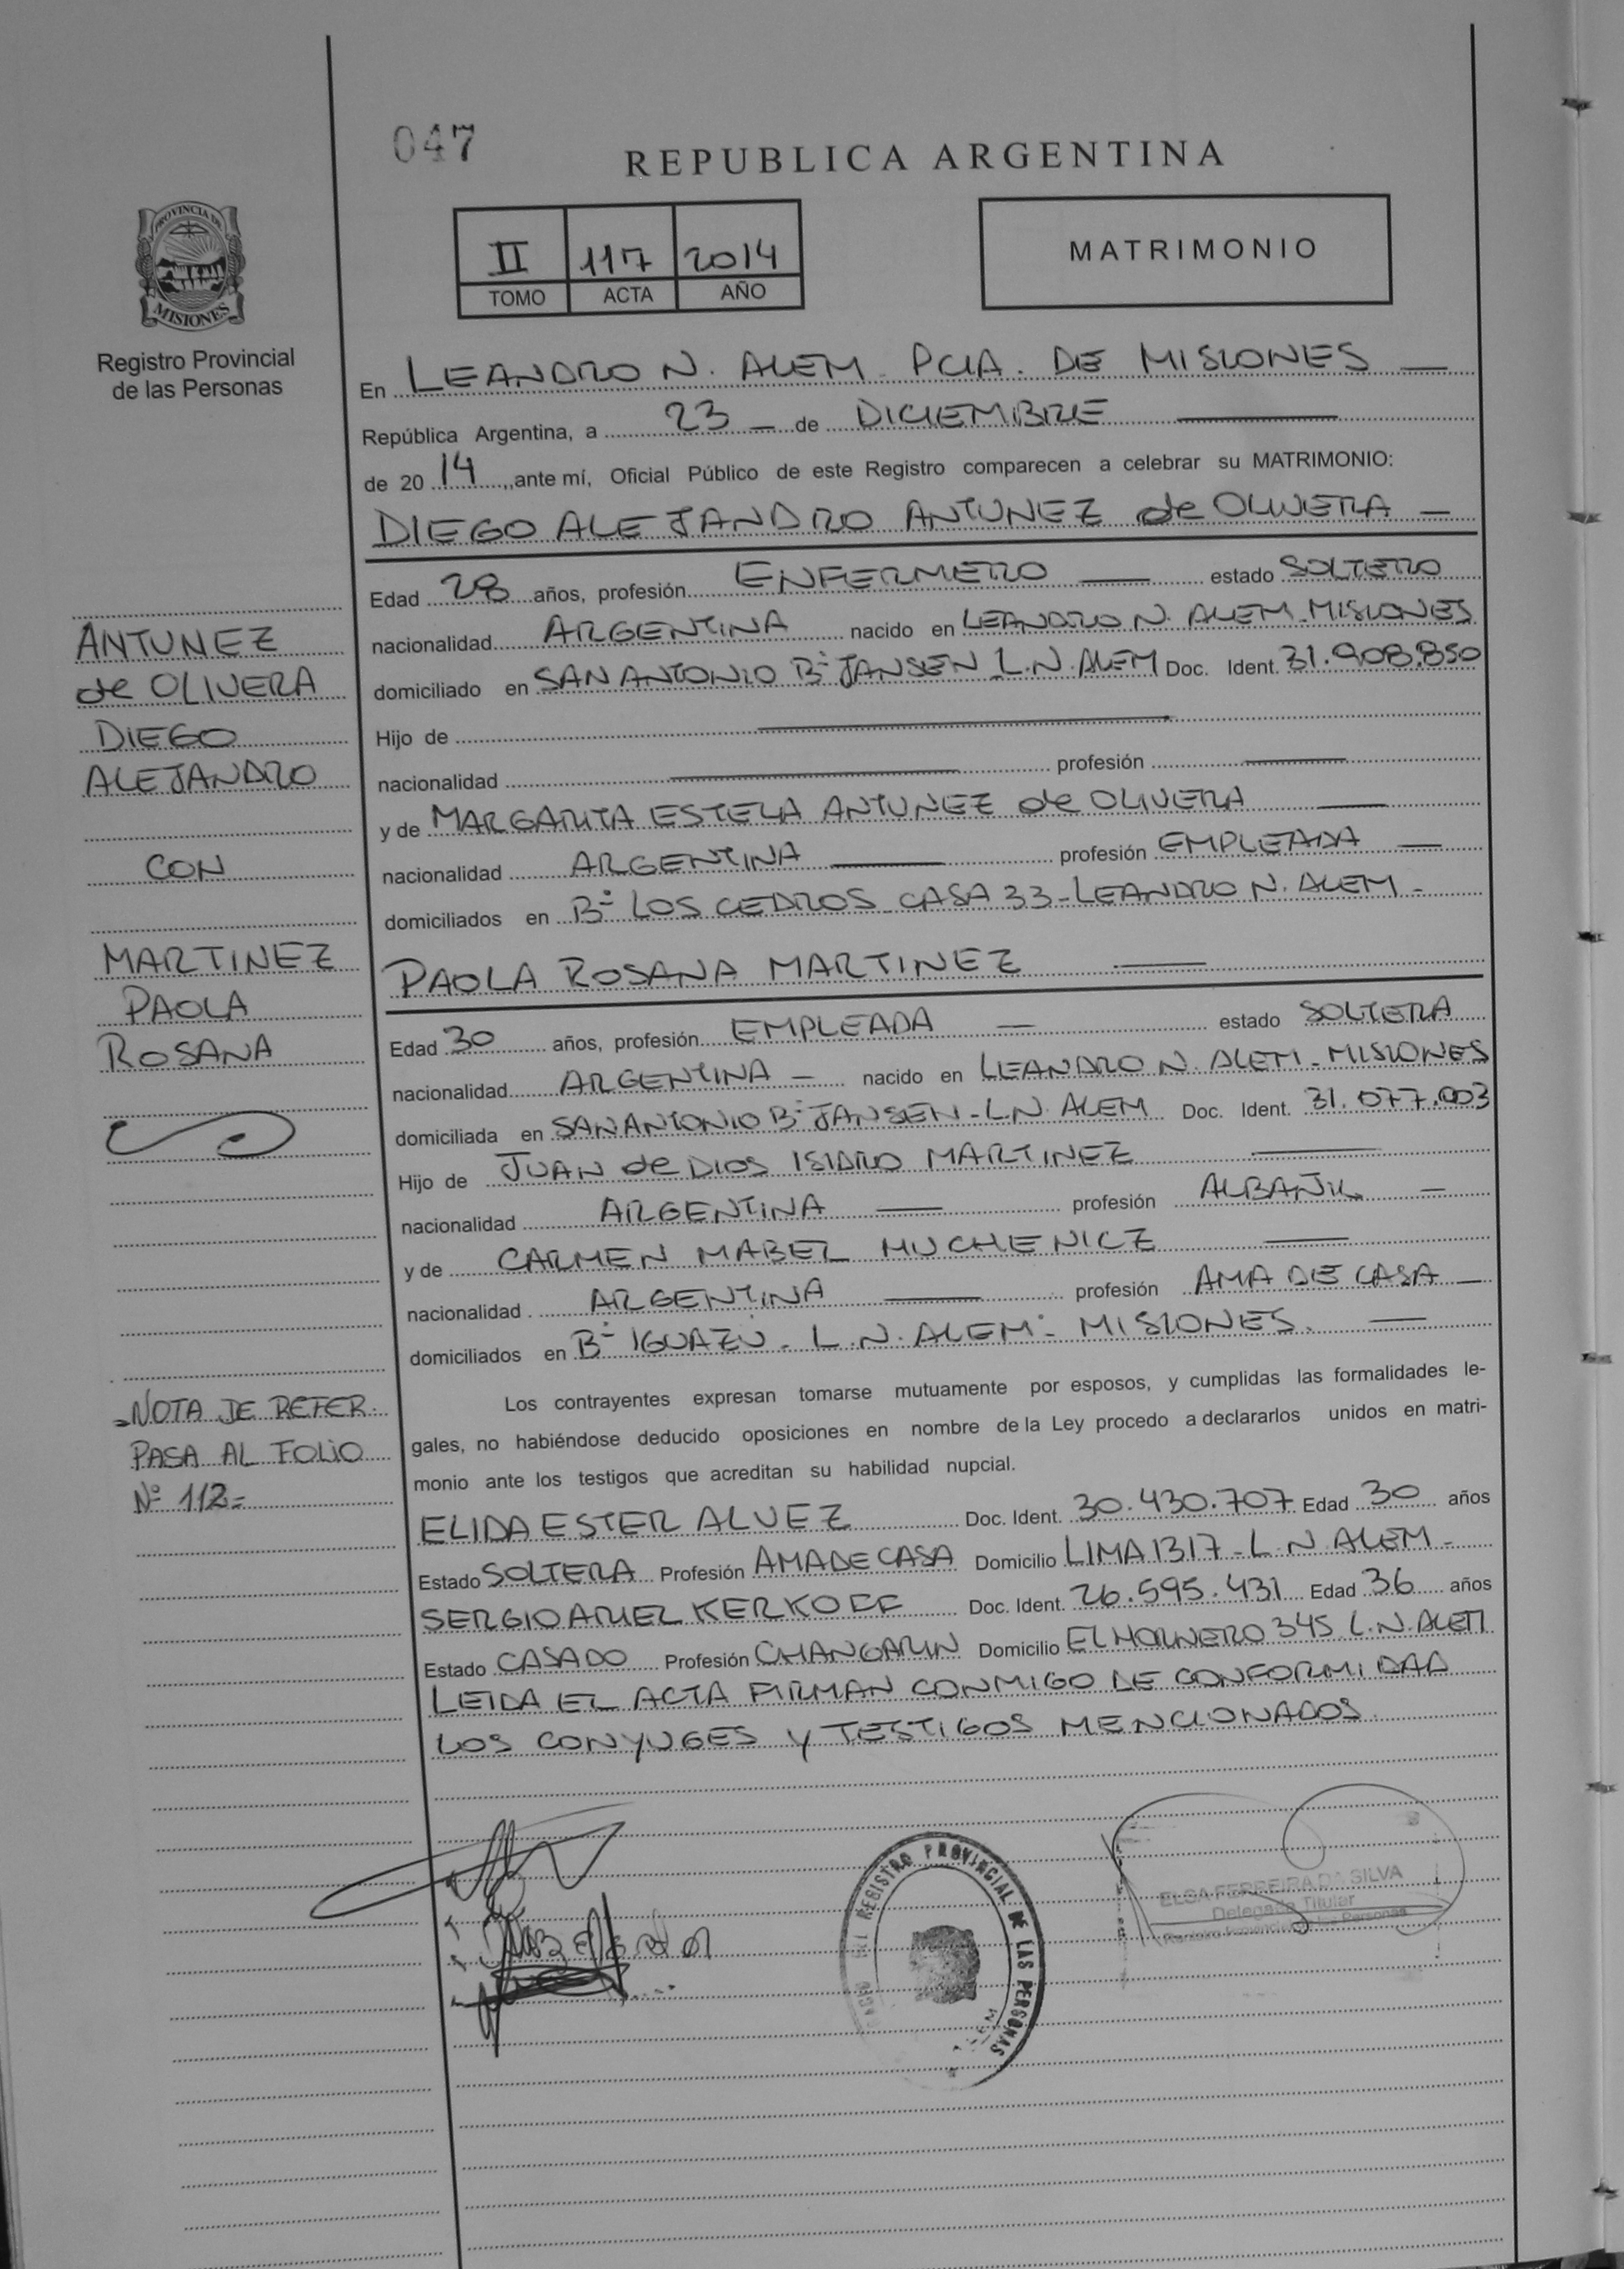 047
REPUBLICA ARGENTINA
PROVINCIA DE
MISIONES
Registro Provincial
de las Personas
II 117 2014
TOMO ACTA AÑO
MATRIMONIO
En LEANDRO N. ALEM PCIA. DE MISIONES
República Argentina, a 23 de DICIEMBRE
de 2014, ante mí, Oficial Público de este Registro comparecen a celebrar su MATRIMONIO:
DIEGO ALEJANDRO ANTUNEZ de OLIVERA
Edad 28 años, profesión ENFERMERO estado SOLTERO
nacionalidad ARGENTINA nacido en LEANDRO N. ALEM - MISIONES
domiciliado en SAN ANTONIO Bº JANSEN - L.N. ALEM Doc. Ident. 31.908.850
Hijo de
nacionalidad profesión
y de MARGARITA ESTELA ANTUNEZ de OLIVERA
nacionalidad ARGENTINA profesión EMPLEADA
domiciliados en Bº LOS CEDROS - CASA 33 - LEANDRO N. ALEM -
PAOLA ROSANA MARTINEZ
Edad 30 años, profesión EMPLEADA estado SOLTERA
nacionalidad ARGENTINA nacido en LEANDRO N. ALEM - MISIONES
domiciliada en SAN ANTONIO Bº JANSEN - L.N. ALEM Doc. Ident. 31.077.003
Hijo de JUAN de DIOS ISIDRO MARTINEZ
nacionalidad ARGENTINA profesión ALBAÑIL
y de CARMEN MABEL HUCHENICZ
nacionalidad ARGENTINA profesión AMA DE CASA
domiciliados en Bº IGUAZÚ - L.N. ALEM - MISIONES.
Los contrayentes expresan tomarse mutuamente por esposos, y cumplidas las formalidades le-
gales, no habiéndose deducido oposiciones en nombre de la Ley procedo a declararlos unidos en matri-
monio ante los testigos que acreditan su habilidad nupcial.
ELIDA ESTER ALVEZ Doc. Ident. 30.430.707 Edad 30 años
Estado SOLTERA Profesión AMA DE CASA Domicilio LIMA 1317 - L.N. ALEM -
SERGIO ARIEL KERKOFF Doc. Ident. 26.595.431 Edad 36 años
Estado CASADO Profesión CHANGARIN Domicilio EL HORNERO 345 L.N. ALEM
LEIDA EL ACTA FIRMAN CONMIGO DE CONFORMIDAD
LOS CONYUGES Y TESTIGOS MENCIONADOS.
ANTUNEZ
de OLIVERA
DIEGO
ALEJANDRO
CON
MARTINEZ
PAOLA
ROSANA
- NOTA DE REFER.
PASA AL FOLIO
Nº 112 =
REGISTRO PROVINCIAL DE LAS PERSONAS
ELSA FERREIRA DA SILVA
Delegada Titular